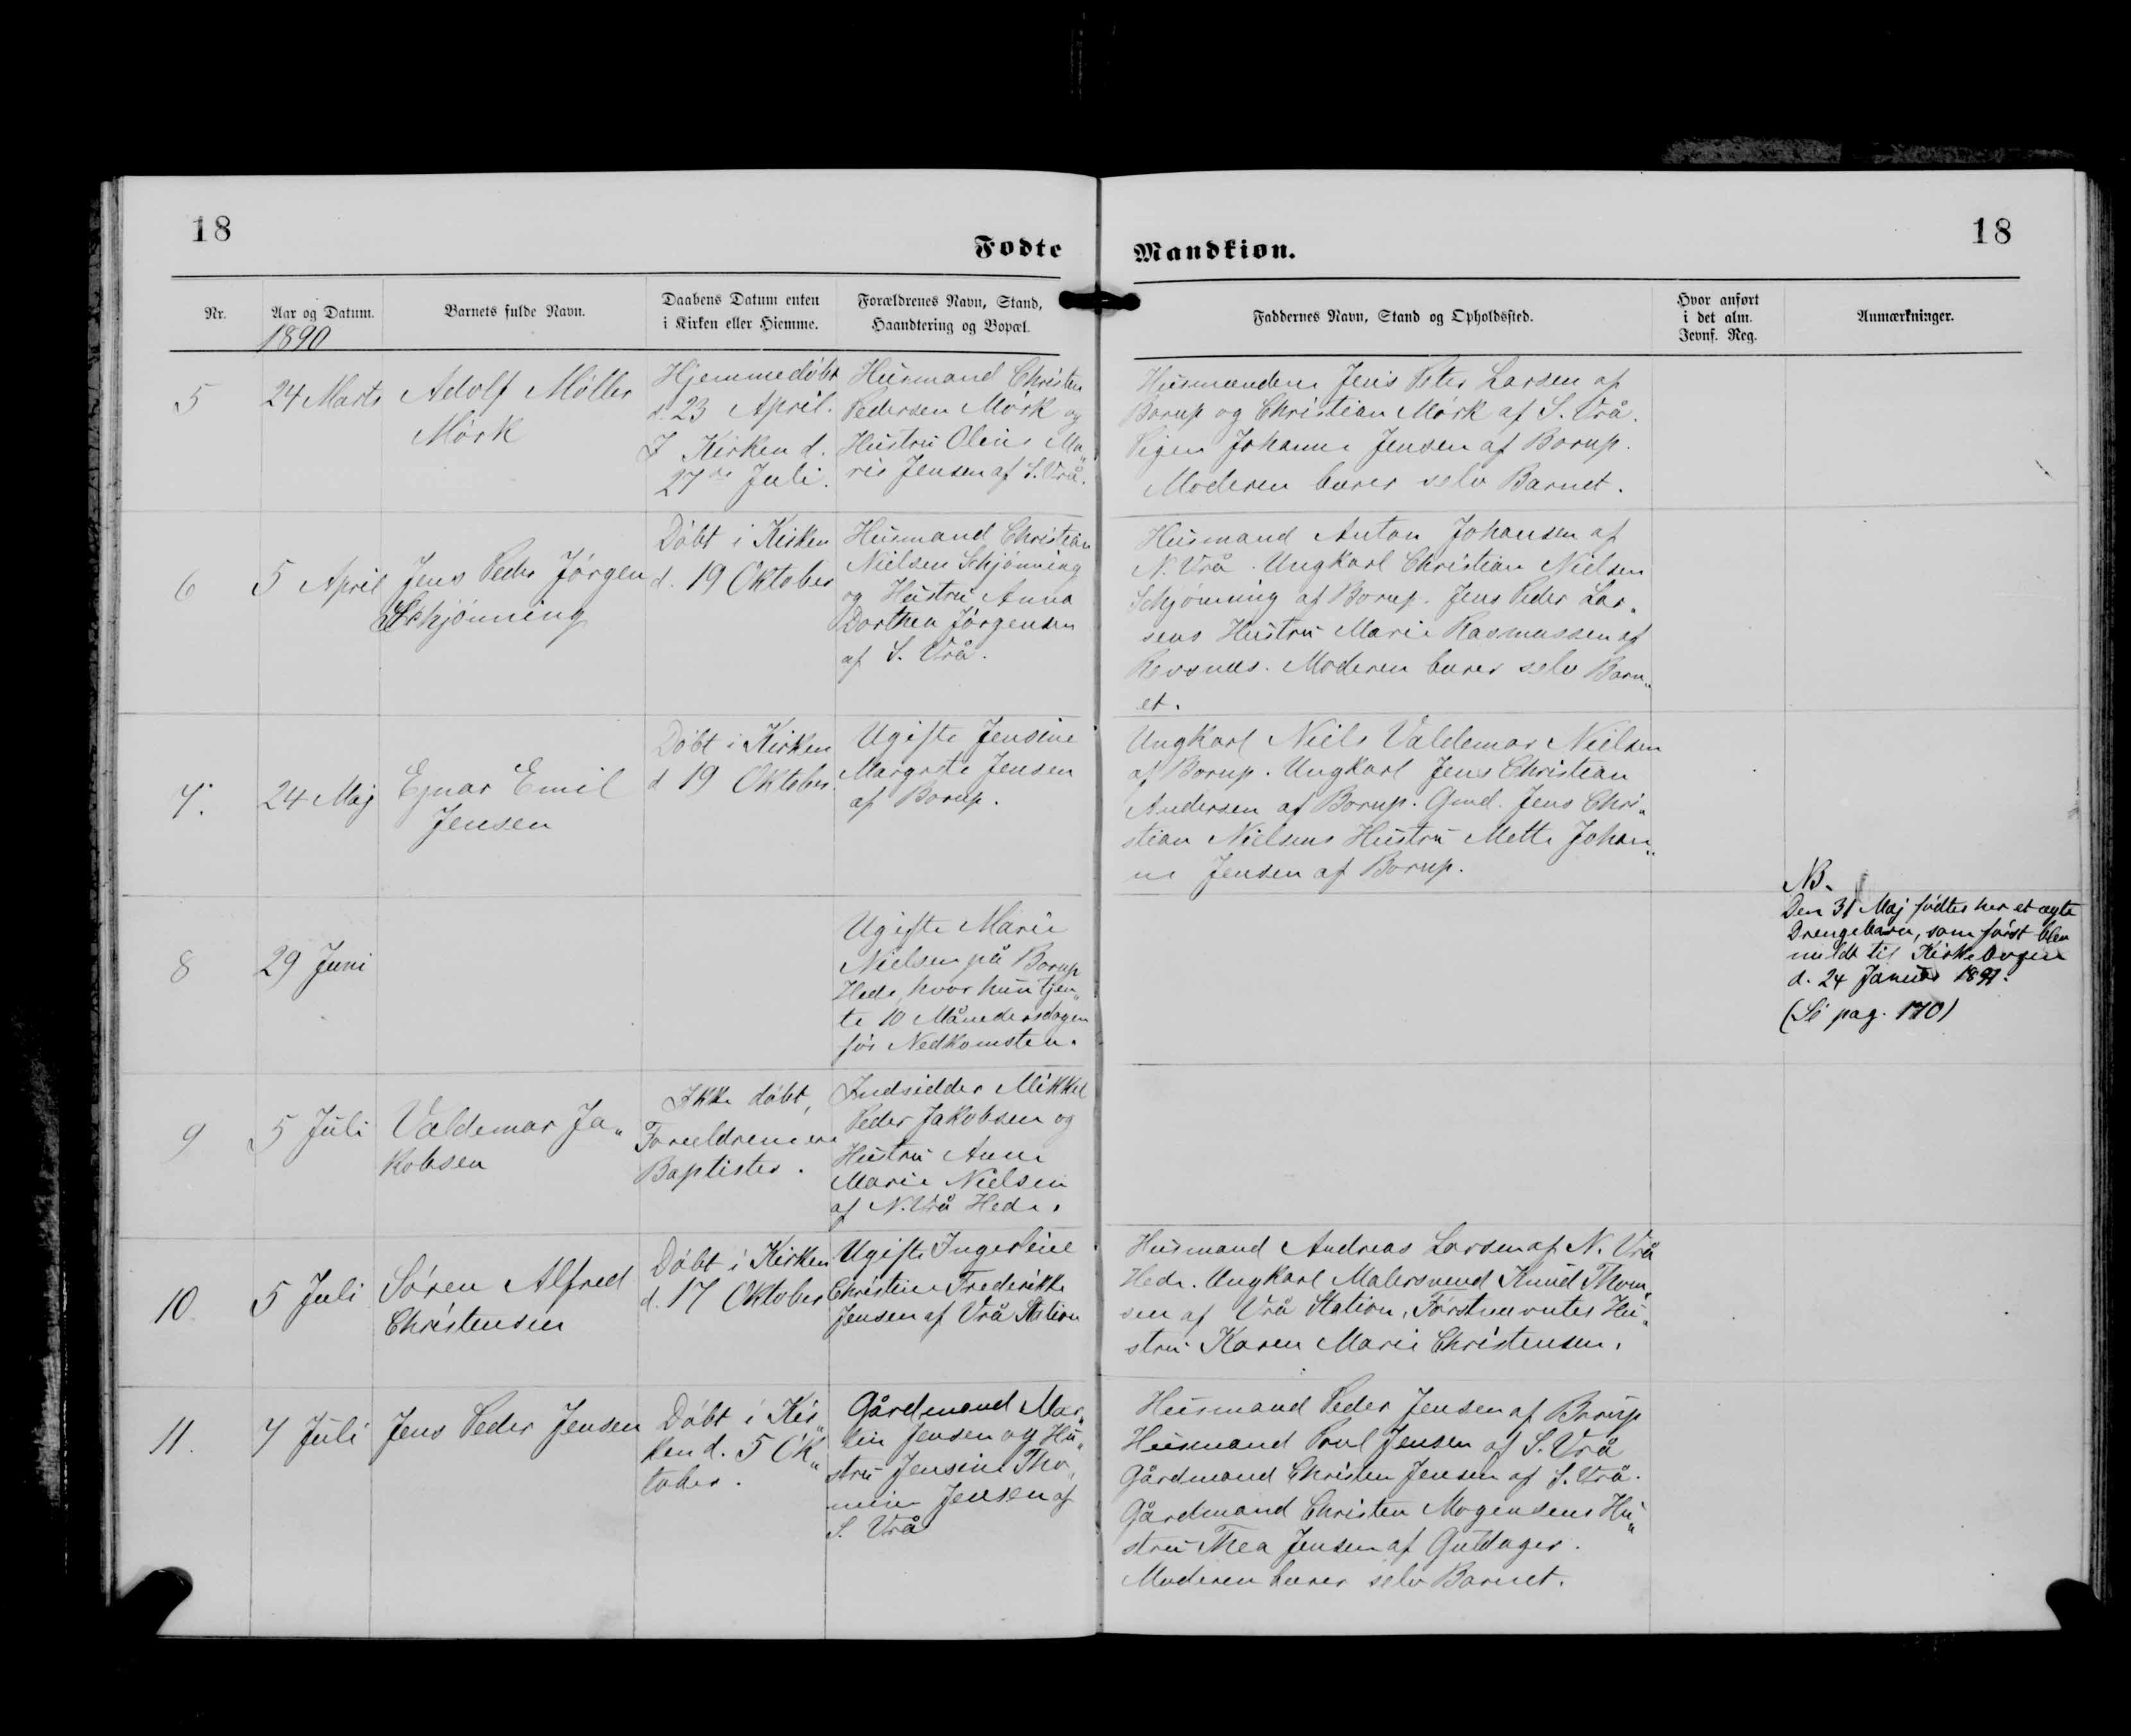 18
18
Fødte
Mandkiøn.
Nr.
Aar og Datum.
1890
Barnets fulde Navn.
Daabens Datum enten
i Kirken eller Hiemme.
Forældrenes Navn, Stand,
Haandtering og Bopæl.
Faddernes Navn, Stand og Opholdssted.
Hvor anført
i det alm.
Jevnf. Reg.
Anmærkninger.
5
24 Marts
Adolf Møller
Mørk
Hjemmedøbt
d. 23 April.
I Kirken d.
27de Juli.
Husmand Christen
Pedersen Mørk og
Hustru Oline Ma„
rie Jensen af S. Vrå.
Husmændene Jens Peter Larsen af
Borup og Christian Mørk af S. Vrå.
Pigen Johanne Jensen af Borup.
Moderen bærer selv Barnet.
6
5 April
Jens Peder Jørgen
Schjønning
Døbt i Kirken
d. 19 Oktober
Husmand Christian
Nielsen Schjønning
og Hustru Anna
Dorthea Jørgensen
af S. Vrå.
Husmand Anton Johansen af
N. Vrå. Ungkarl Christian Nielsen
Schjønning af Borup. Jens Peder Lar„
sens Hustru Marie Rasmussen af
Moderen bærer selv Barn„
et.
7.
24 Maj
Ejnar Emil
Jensen
Døbt i Kirken
d 19 Oktober.
Ugifte Jensine
Margrete Jensen
af Borup.
Ungkarl Niels Valdemar Nielsen
af Borup. Ungkarl Jens Christian
Andersen af Borup. Gmd. Jens Chri„
stian Nielsens Hustru Mette Johan„
ne Jensen af Borup.
8
29 Juni
Ugifte Marie
Nielsen på Borup
Hede, hvor hun tjen„
te 10 Månedersdagen
før Nedkomsten.
NB.
Den 31 Maj fødtes her et ægte
Drengebarn, som først blev
meldt til Kirkebogen
d. 24 Januar 1891.
(Se pag. 170)
9
5 Juli
Valdemar Ja„
kobsen
Ikke døbt,
Forældrene ere
Baptister.
Indsidder Mikkel
Peder Jakobsen og
Hustru Anne
Marie Nielsen
af N. Vrå Hede.
10
5 Juli
Søren Alfred
Christensen
Døbt i Kirken
d. 17 Oktober
Ugifte Ingerline
Christine Frederikke
Jensen af Vrå Station
Husmand Andreas Larsen af N. Vrå
Hede. Ungkarl Malersvend Knud Thom„
sen af Vrå Station, Forstnævntes Hu„
stru Karen Marie Christensen.
11.
7 Juli
Jens Peder Jensen
Døbt i Kir„
ken d. 5 Ok„
tober.
Gårdmand Mar„
tin Jensen og Hu„
stru Jensine Tho„
mine Jensen af
S. Vrå
Husmand Peder Jensen af Borup
Husmand Poul Jensen af S. Vrå
Gårdmand Christen Jensen af S. Vrå.
Gårdmand Christen Mogensens Hu„
stru Thea Jensen af Guldager.
Moderen bærer selv Barnet.